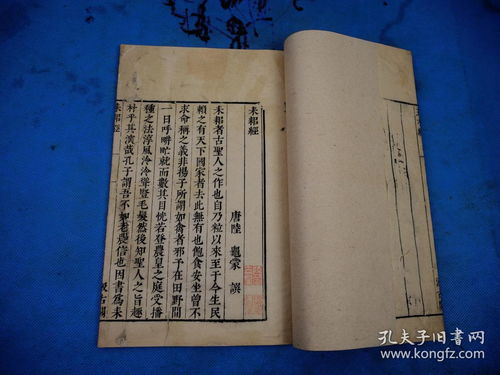 耒耜經
唐陸 龜蒙 譔
耒耜者古聖人之作也自乃粒以來至于今生民
賴之有天下國家者去此無有也飽食安坐曾不
求命稱之義非揚子所謂如禽者邪予在田野間
一日呼耕甿就而數其目恍若登農皇之庭受播
種之法淳風泠泠聳豎毛髮然後知聖人之旨趣
朴乎其深哉孔子謂吾不如老農信也因書爲耒
耒耜經
汲古閣
孔夫子旧书网
www.kongfz.com